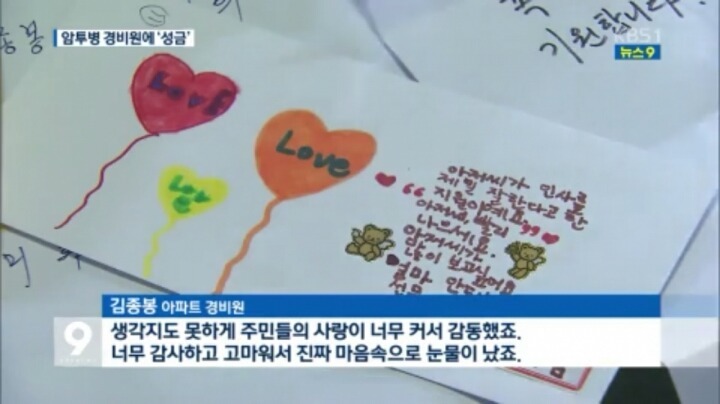 암투병 경비원에 '성금'
기원합니다!
KBS1
뉴스9
Love
Love
Love
아저씨가 인사를
제일 잘한다고 한
지원이예요.
아저씨, 빨리
나으세요.
아저씨가
많이 보고싶
김종봉 아파트 경비원
9
생각지도 못하게 주민들의 사랑이 너무 커서 감동했죠.
너무 감사하고 고마워서 진짜 마음속으로 눈물이 났죠.